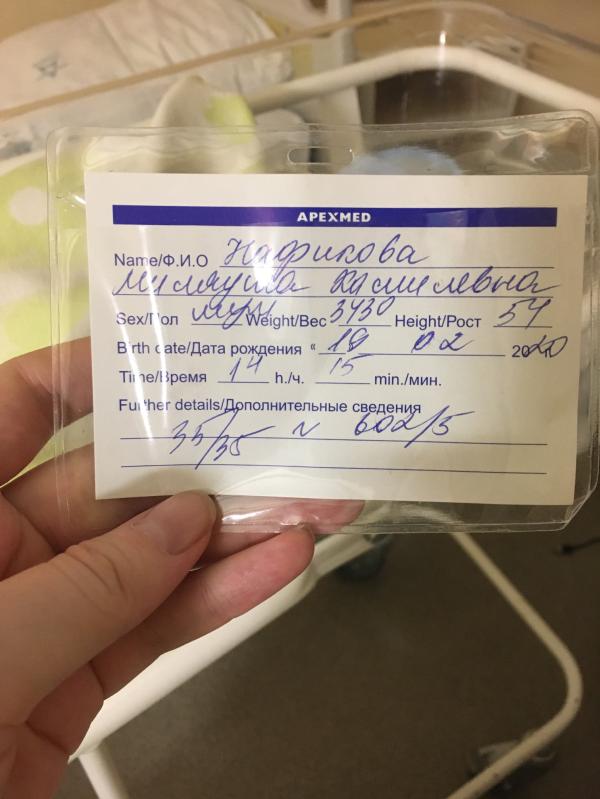 APEXMED
Name/Ф.И.О Нафикова
Миляуша Камилевна
Sex/Пол муж Weight/Вес 3430 Height/Рост 54
Birth date/Дата рождения « 18 02 2020
Time/Время 14 h./ч. 15 min./мин.
Further details/Дополнительные сведения
35/35 N 602/5